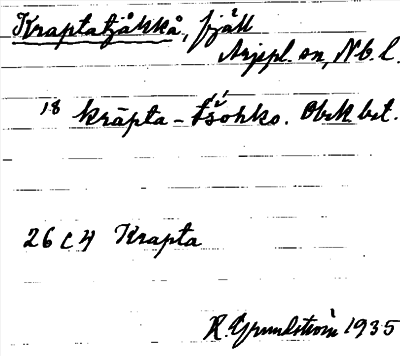 Kraptatjåkkå, fjäll
Arjepl. sn, Nb. l.
18 krāpta - tšohko. Obek. bet.
26 C 4 Krapta
H. Grundström 1935